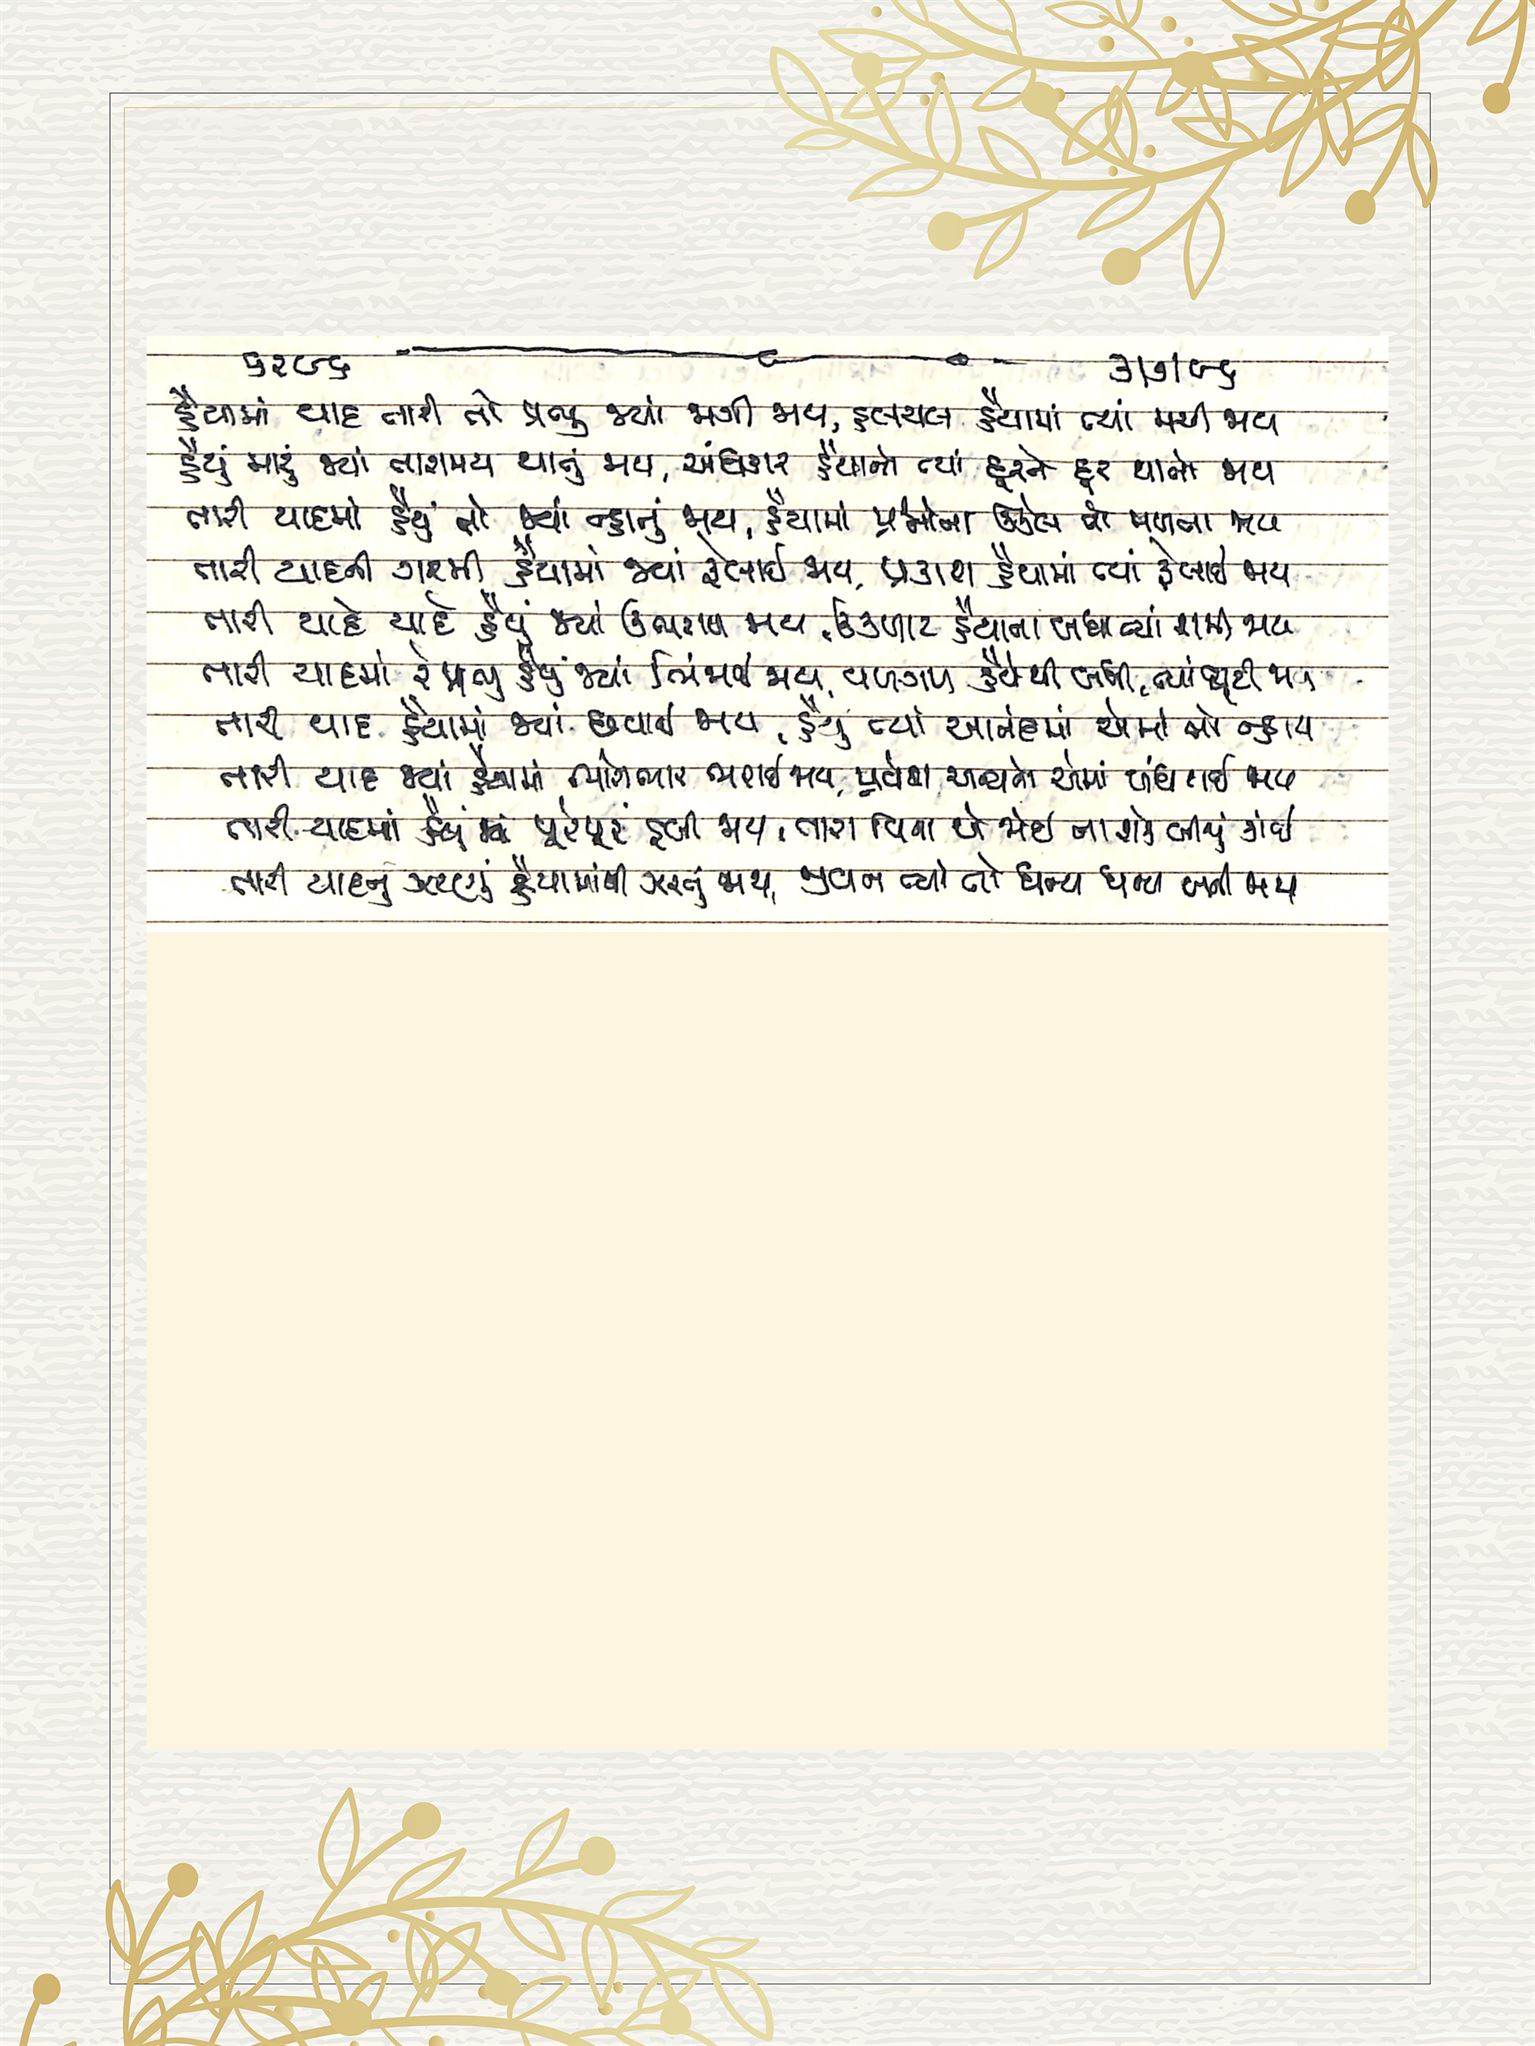 ૬૨૯૬ ૩/૭/૯૬
હૈયામાં યાદ તારી તો પ્રભુ જ્યાં જાગી જાય, હલચલ હૈયામાં ત્યાં મચી જાય
હૈયું મારું જ્યાં તારામય થાતું જાય, અંધકાર હૈયાનો ત્યાં દૂરને દૂર થાતો જાય
તારી યાદમાં હૈયું તો જ્યાં ન્હાતું જાય, હૈયામાં પ્રશ્નોના ઉકેલ તો મળતા જાય
તારી યાદની ગરમી હૈયામાં જ્યાં ફેલાઈ જાય, પ્રકાશ હૈયામાં ત્યાં ફેલાઈ જાય
તારી યાદે યાદે હૈયું જ્યાં ઉભરાય જાય, ઉકળાટ હૈયાના બધા ત્યાં શમી જાય
તારી યાદમાં રે પ્રભુ હૈયું જ્યાં ભિંજાઈ જાય, વળગણ હૈયેથી બધી, ત્યાં છૂટી જાય
તારી યાદ હૈયામાં જ્યાં છવાઈ જાય, હૈયું ત્યાં આનંદમાં એમાં તો ન્હાય
તારી યાદ જ્યાં હૈયામાં ભારોભાર ભરાઈ જાય, પ્રવેશ અન્યનો એમાં બંધ થઈ જાય
તારી યાદમાં હૈયું જ્યાં પૂરેપૂરું ડૂબી જાય, તારા વિના એ જોઈ ના શકે બીજું કાંઈ
તારી યાદનું ઝરણું હૈયામાંથી ઝરતું જાય, જીવન ત્યાં તો ધન્ય ધન્ય બની જાય